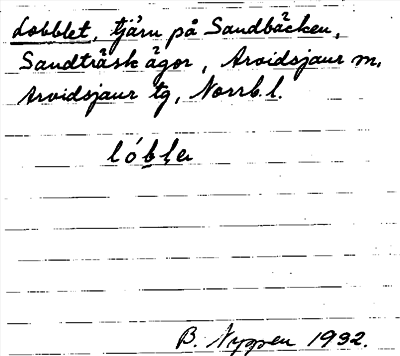 Lobblet, tjärn på Sandbäcken,
Sandträsk ägor, Arvidsjaur m,
Arvidsjaur tg, Norrb. l.
lóbla
B. Nygren 1932.